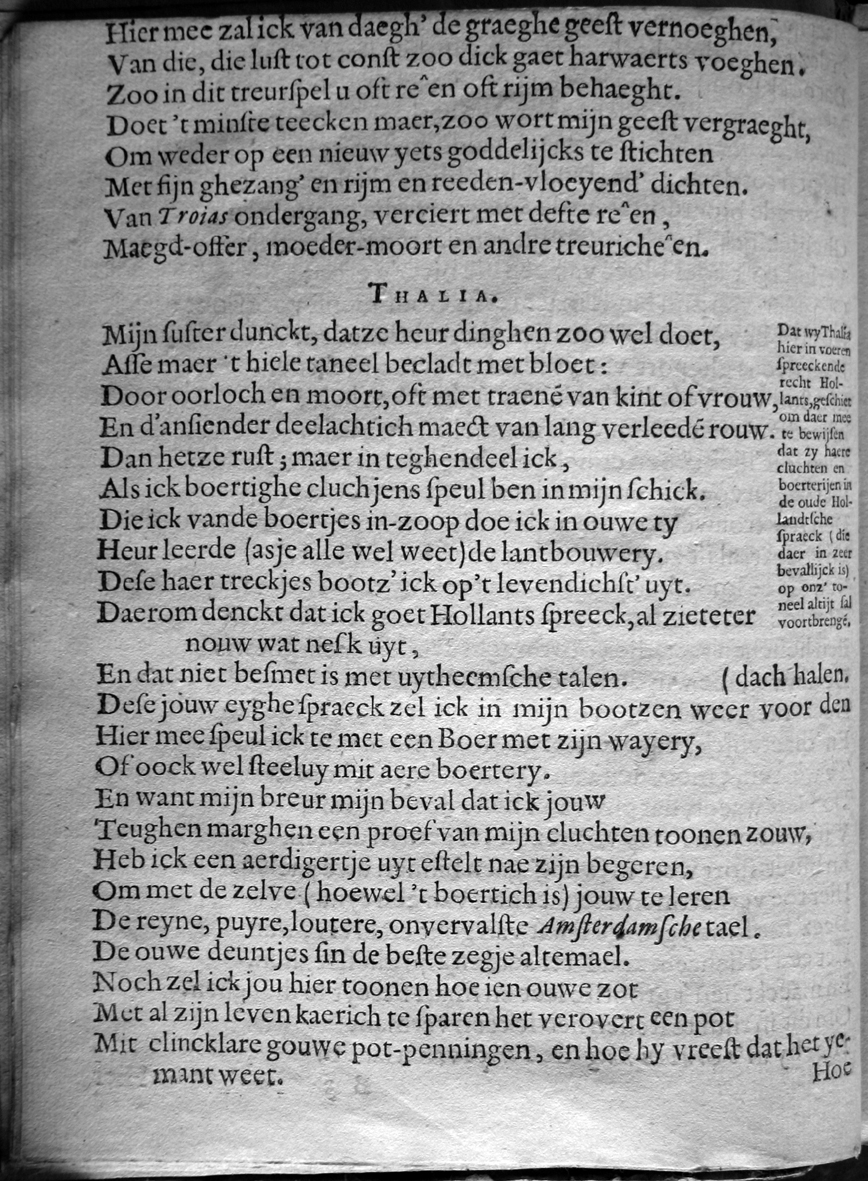 Hier mee zal ick van daegh' de graeghe geeſt vernoeghen,
Van die, die luſt tot conſt zoo dick gaet harwaerts voeghen.
Zoo in dit treurſpel u oft re^en oft rijm behaeght.
Doet 't minſte teecken maer, zoo wort mijn geeſt vergraeght,
Om weder op een nieuw yets goddelijcks te ſtichten
Met fijn ghezang' en rijm en reeden-vloeyend' dichten.
Van Troias ondergang, verciert met defte re^en,
Maegd-offer, moeder-moort en andre treuriche^en.
THALIA.
Mijn ſuſter dunckt, datze heur dinghen zoo wel doet,
Aſſe maer 't hiele taneel becladt met bloet:
Door oorloch en moort, oft met traené van kint of vrouw,
En d'anſiender deelachtich maeckt van lang verleedé rouw.
Dan hetze ruſt; maer in teghendeel ick,
Als ick boertighe cluchjens ſpeul ben in mijn ſchick.
Die ick vande boertjes in-zoop doe ick in ouwe ty
Heur leerde (asje alle wel weet) de lantbouwery.
Deſe haer treckjes bootz' ick op't levendichſt' uyt.
Daerom denckt dat ick goet Hollants ſpreeck, al zieteter
nouw wat neſk uyt,
En dat niet beſmet is met uytheemſche talen. (dach halen.
Deſe jouw eyghe ſpraeck zel ick in mijn bootzen weer voor den
Hier mee ſpeul ick te met een Boer met zijn wayery,
Of oock wel ſteeluy mit aere boertery.
En want mijn breur mijn beval dat ick jouw
Teughen marghen een proef van mijn cluchten toonen zouw,
Heb ick een aerdigertje uyt eſtelt nae zijn begeren,
Om met de zelve (hoewel 't boertich is) jouw te leren
De reyne, puyre, loutere, onvervalſte Amſterdamſche tael.
De ouwe deuntjes ſin de beſte zegje altemael.
Noch zel ick jou hier toonen hoe ien ouwe zot
Met al zijn leven kaerich te ſparen het verovert een pot
Mit clincklare gouwe pot-penningen, en hoe hy vreeſt dat het ye-
mant weet.
Hoe
Dat wy Thalia
hier in voeren
ſpreeckende
recht Hol-
lants, geſchiet
om daer mee
te bewijſen
dat zy haere
cluchten en
boerterijen in
de oude Hol-
landtſche
ſpraeck (die
daer in zeer
bevallijck is)
op onz' to-
neel altijt ſal
voortbrengé.